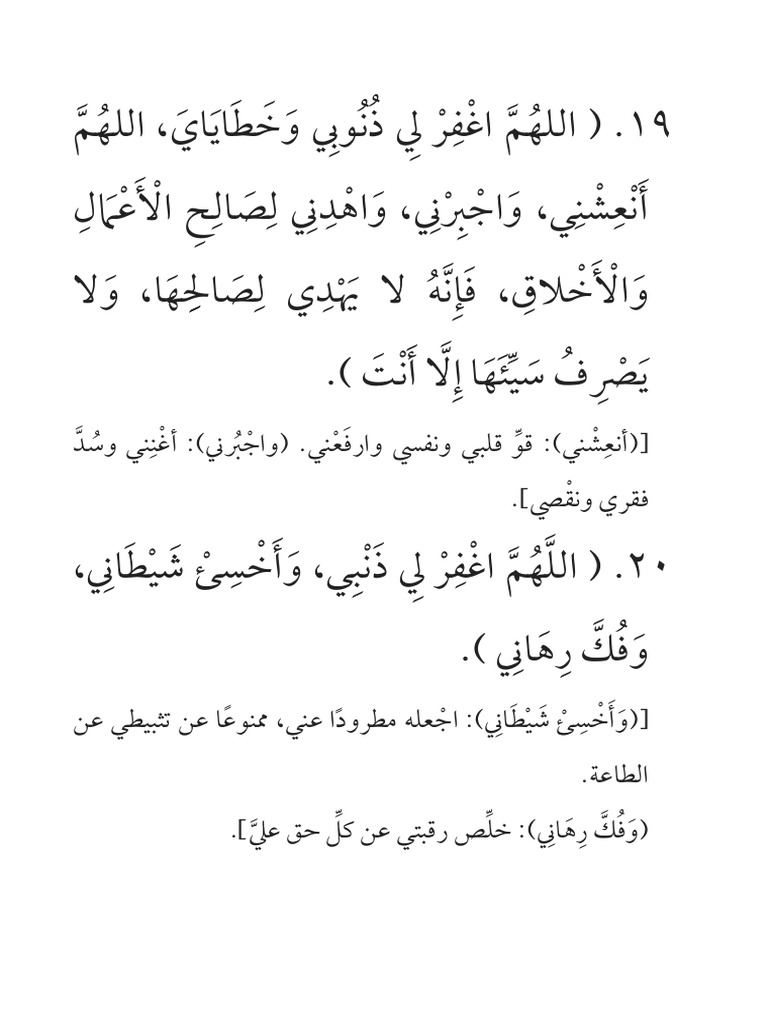 ١٩. ( اللهُمَّ اغْفِرْ لِي ذُنُوبِي وَخَطَايَايَ، اللهُمَّ
أَنْعِشْنِي، وَاجْبِرْنِي، وَاهْدِنِي لِصَالِحِ الْأَعْمَالِ
وَالْأَخْلاقِ، فَإِنَّهُ لا يَهْدِي لِصَالِحِهَا، وَلا
يَصْرِفُ سَيِّئَهَا إِلَّا أَنْتَ ).
[(أنعِشْني): قوِّ قلبي ونفسي وارفَعْني. (واجْبُرني): أغْنِنِي وسُدَّ
فقري ونقْصي].
٢٠. ( اللَّهُمَّ اغْفِرْ لِي ذَنْبِي، وَأَخْسِئْ شَيْطَانِي،
وَفُكَّ رِهَانِي ).
[(وَأَخْسِئْ شَيْطَانِي): اجْعله مطرودًا عني، ممنوعًا عن تثبيطي عن
الطاعة.
(وَفُكَّ رِهَانِي): خلِّص رقبتي عن كلِّ حق عليَّ].